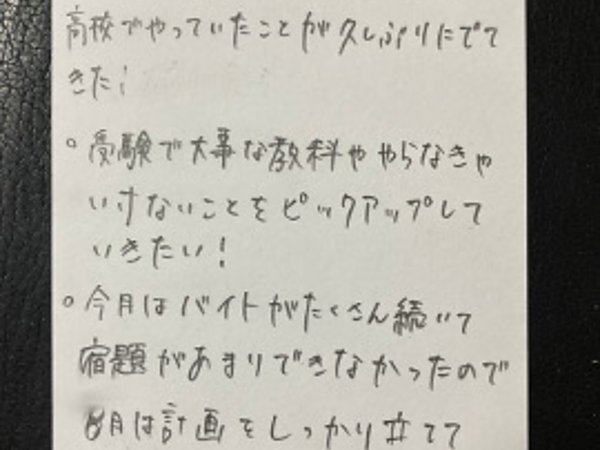 高校でやっていたことが久しぶりにでて
きた!
◦ 受験で大事な教科ややらなきゃ
いけないことをピックアップして
いきたい!
◦ 今月はバイトがたくさん続いて
宿題があまりできなかったので
8月は計画をしっかり立てて